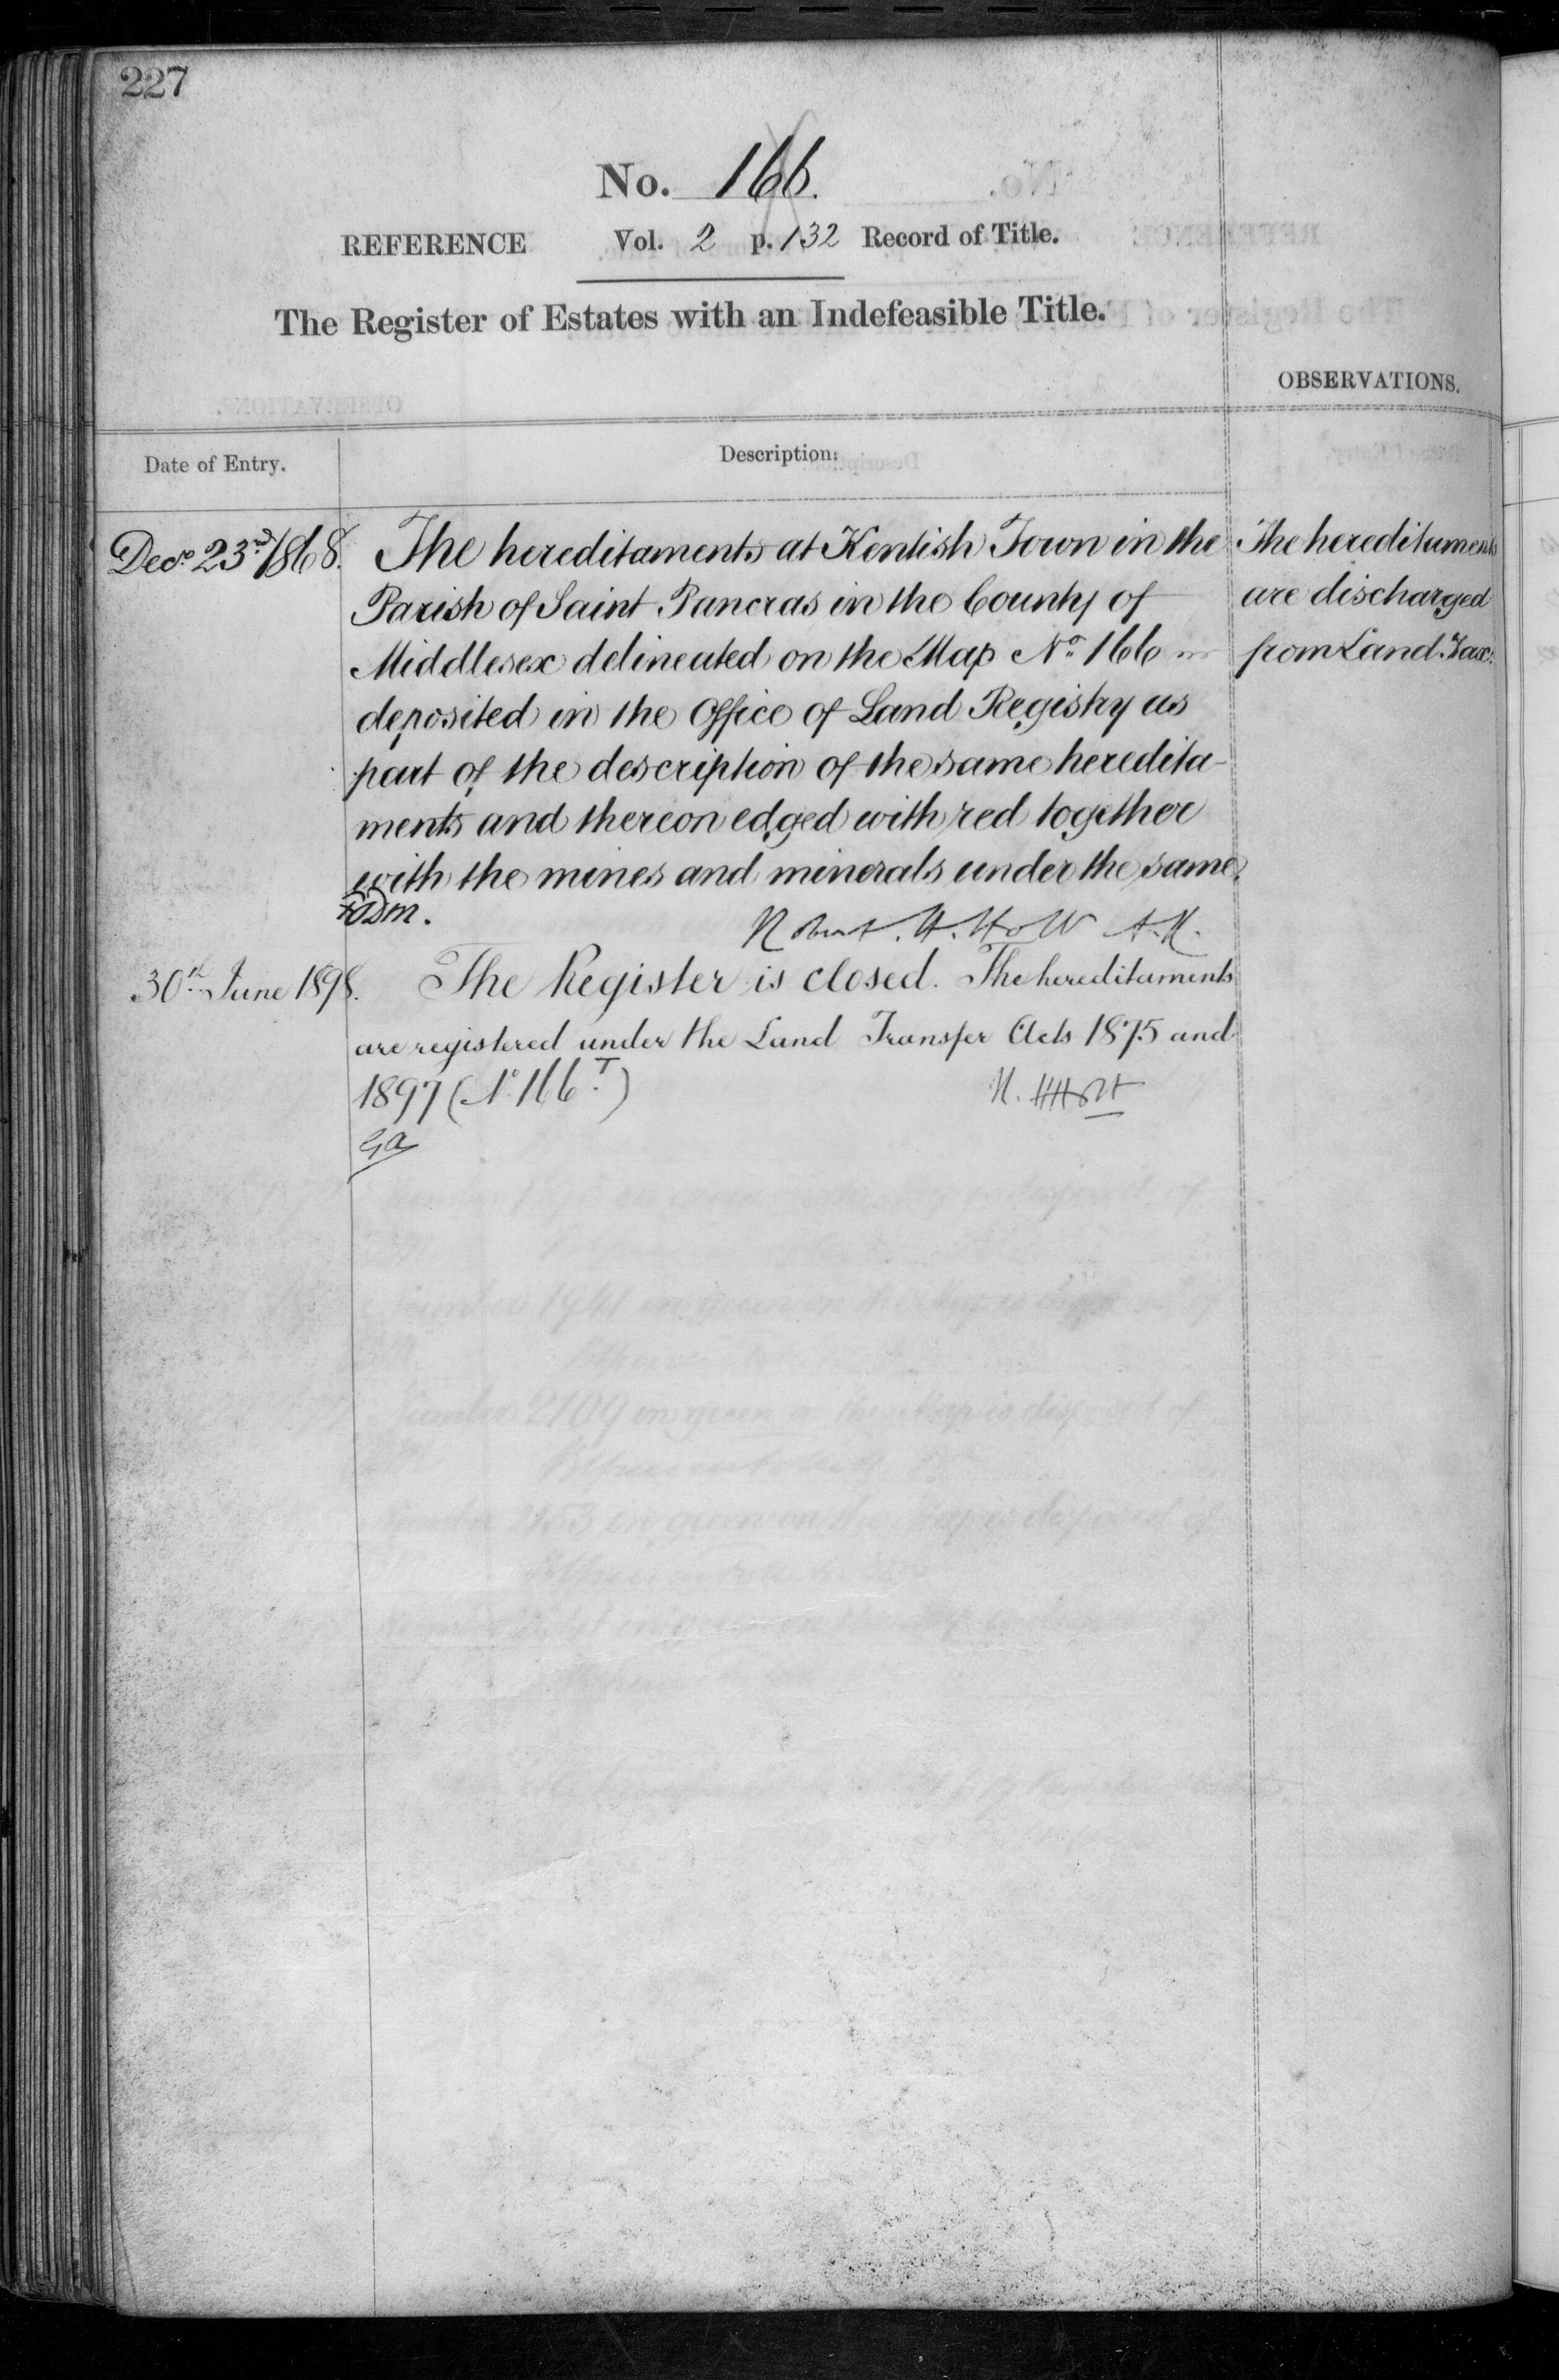 227
No. 166.
REFERENCE Vol. 2 p. 132 Record of Title.
The Register of Estates with an Indefeasible Title.
OBSERVATIONS.
Date of Entry.
Description:
Decr 23rd 1868.
The hereditaments at Kentish Town in the
Parish of Saint Pancras in the County of
Middlesex delineated on the Map No. 166
deposited in the Office of Land Registry as
part of the description of the same heredita-
ments and thereon edged with red together
with the mines and minerals under the same.
Robert. H. Holt A.R.
The hereditaments
are discharged
from Land Tax.
30th June 1898.
The Register is closed. The hereditaments
are registered under the Land Transfer Acts 1875 and
1897 (No. 166T.)
R. H Holt